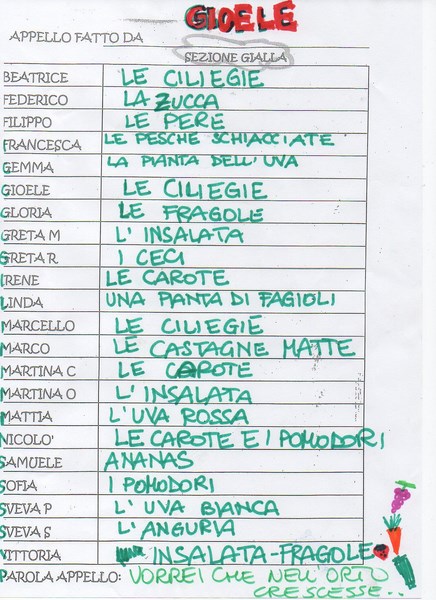 APPELLO FATTO DA GIOELE
SEZIONE GIALLA
BEATRICE LE CILIEGIE
FEDERICO LA ZUCCA
FILIPPO LE PERE
FRANCESCA LE PESCHE SCHIACCIATE
GEMMA LA PIANTA DELL'UVA
GIOELE LE CILIEGIE
GLORIA LE FRAGOLE
GRETA M L'INSALATA
GRETA R I CECI
IRENE LE CAROTE
LINDA UNA PIANTA DI FAGIOLI
MARCELLO LE CILIEGIE
MARCO LE CASTAGNE MATTE
MARTINA C LE CAROTE
MARTINA O L'INSALATA
MATTIA L'UVA ROSSA
NICOLO' LE CAROTE E I POMODORI
SAMUELE ANANAS
SOFIA I POMODORI
SVEVA P L'UVA BIANCA
SVEVA S L'ANGURIA
VITTORIA INSALATA-FRAGOLE
PAROLA APPELLO: VORREI CHE NELL'ORTO
CRESCESSE..